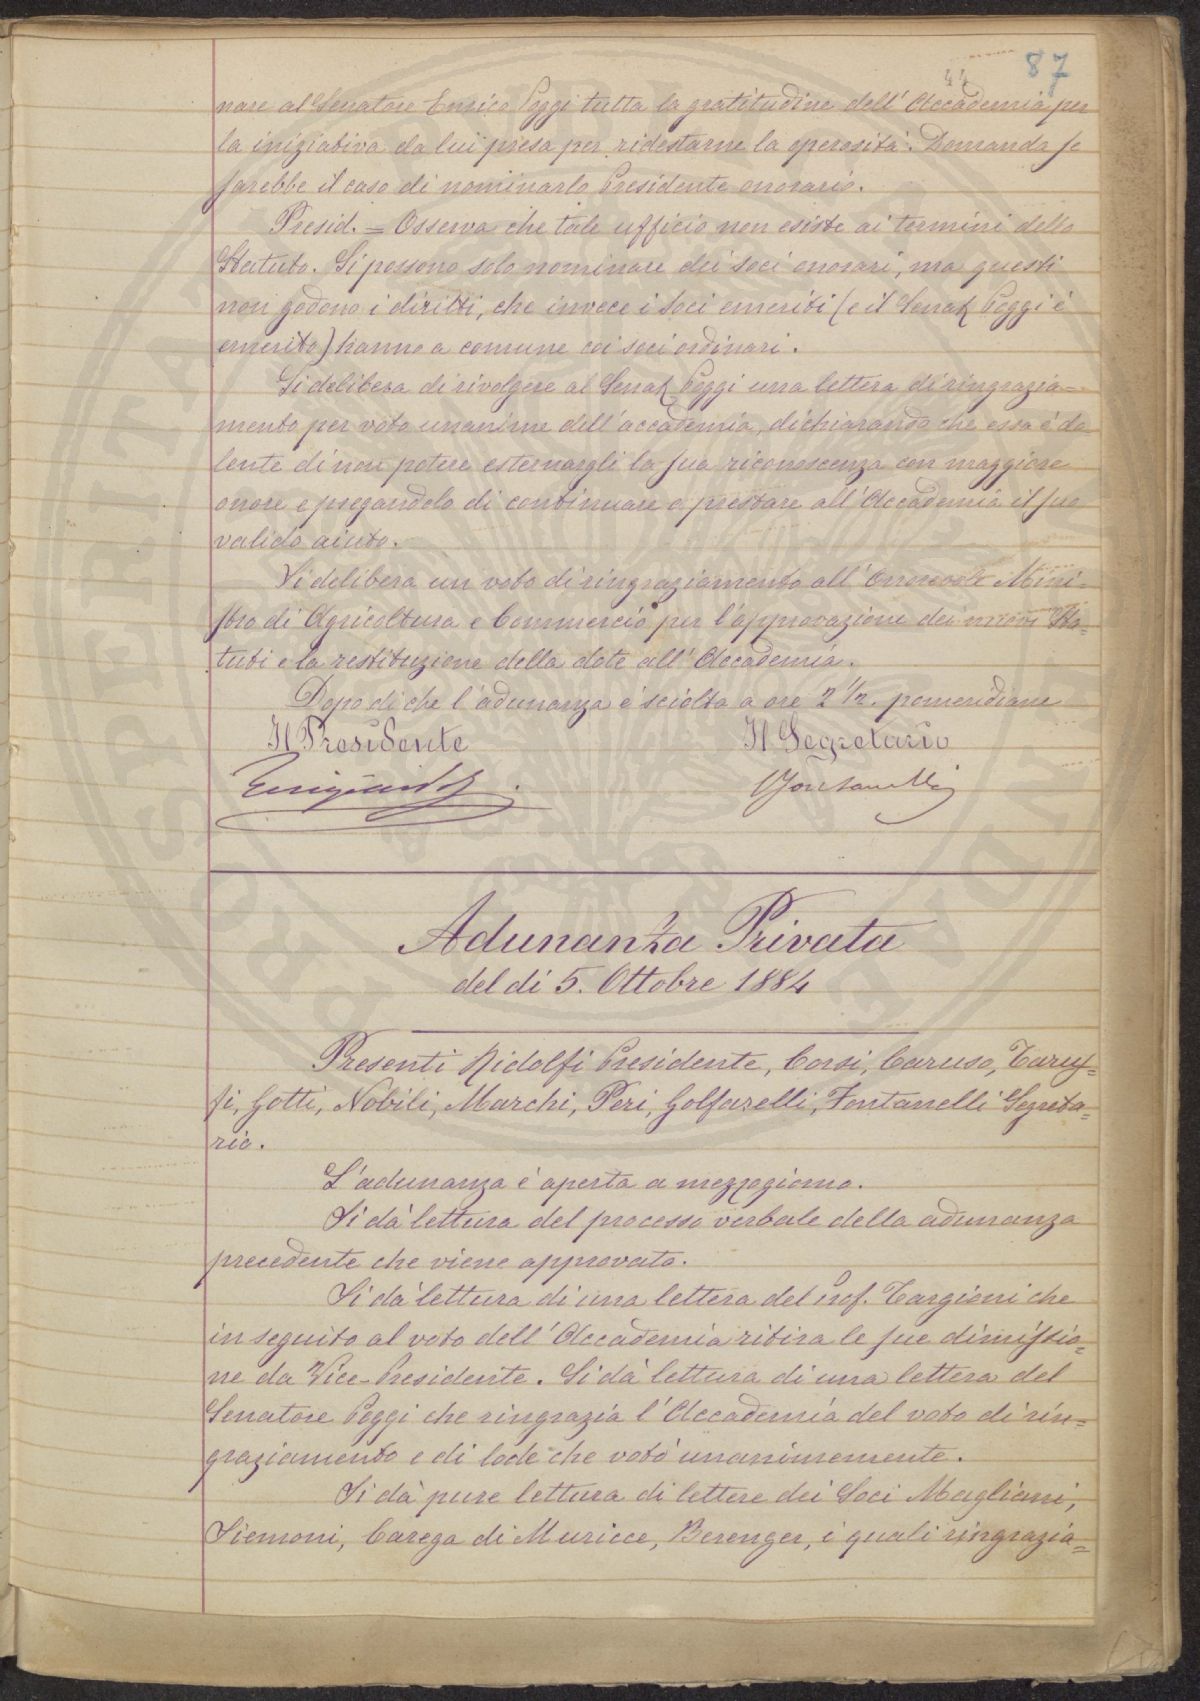 44 87
nare al Senatore Enrico Poggi tutta la gratitudine dell'Accademia per
la iniziativa da lui presa per ridestarne la operosità. Domanda se
sarebbe il caso di nominarlo Presidente onorario.
Presid. = Osserva che tale ufficio non esiste ai termini dello
Statuto. Si possono solo nominare dei soci onorari, ma questi
non godono i diritti, che invece i soci emeriti (e il Senat. Poggi è
emerito) hanno a comune coi soci ordinari.
Si delibera di rivolgere al Senat. Poggi una lettera di ringrazia=
mento per voto unanime dell'accademia, dichiarando che essa è do
lente di non potere esternargli la sua riconoscenza con maggiore
onore e pregandolo di continuare a prestare all'Accademia il suo
valido aiuto.
Si delibera un voto di ringraziamento all'Onorevole Mini=
stro di Agricoltura e Commercio per l'approvazione dei nuovi Sta=
tuti e la restituzione della dote all'Accademia.
Dopo di che l'adunanza è sciolta a ore 2 1/2. pomeridiane
Il Presidente Il Segretario
Fontanelli
Adunanza Privata
del dì 5. Ottobre 1884
Presenti Ridolfi Presidente, Corsi, Caruso, Taruf=
fi, Gotti, Nobili, Marchi, Peri, Golfarelli, Fontanelli Segreta=
rio.
L'adunanza è aperta a mezzogiorno.
Si dà lettura del processo verbale della adunanza
precedente che viene approvato.
Si dà lettura di una lettera del Prof. Targioni che
in seguito al voto dell'Accademia ritira le sue dimissio=
ne da Vice-Presidente. Si dà lettura di una lettera del
Senatore Poggi che ringrazia l'Accademia del voto di rin=
graziamento e di lode che votò unanimemente.
Si dà pure lettura di lettere dei Soci Magliani,
Siemoni, Carega di Muricce, Berenger, i quali ringrazia=